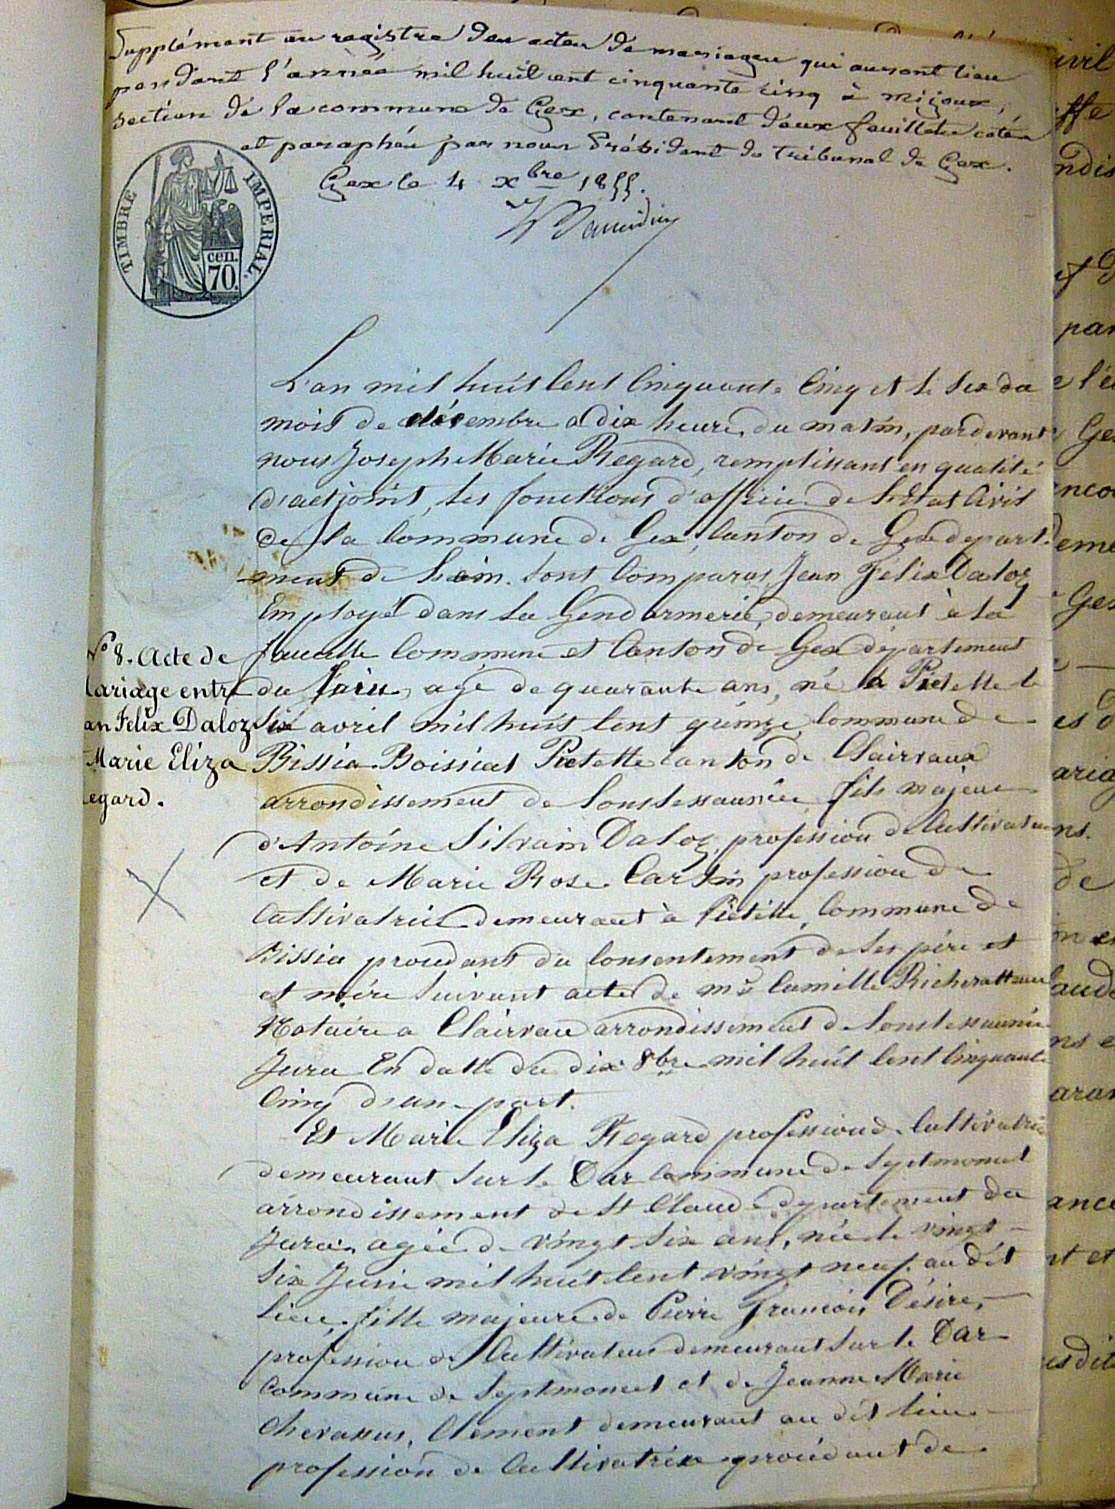 Supplément au registre des actes de mariages qui auront lieu
pendant l'année mil huit cent cinquante cinq à mijoux,
section de la commune de Gex, contenant deux feuillets cotés
et paraphés par nous Président du tribunal de Gex.
Gex le 4 xbre 1855.
TIMBRE IMPERIAL
cen.
70.
L'an mil huit Cent Cinquante Cinq et le six du
mois de décembre a dix heure du matin, pardevant
nous Joseph Marie Regard, remplissant en qualité
d'adjoint, les fonctions d'officie de l'état Civil
de la Commune de Gex, Canton de Gex depart
ment de l'ain. Sont Comparus Jean Félix Daloz
Employé dans la Gendarmerie, demeurant à la
faucille Commune et Canton de Gex département
N° 8. Acte de
Mariage entre
an Felix Daloz
Marie Eliza
egard.
du Jura, agé de quarante ans, né à Pietelle le
Six avril mil huit Cent quinze Commune de
Bissia Boissiat Pietelle canton de Clairvaux
arrondissement de Lonslessaunier fils majeur
d'Antoine Silvain Daloz, profession de Cultivateur
et de Marie Rose Cartin profession de
Cultivatrice demeurant à Pietelle, Commune de
Bissia procedant du Consentement de ses père et
et mère suivant acte de me Camille
Notaire a Clairvau arrondissement de Lonslessaunier
Jura En datte du dix 8bre mil huit Cent Cinquante
Cinq d'une part.
Et Marie Eliza Regard profession de Cultivatrice
demeurant sur le Dar Commune de Septmoncel
arrondissement de St Claude département du
Jura, agée de vingt six ans, née le vingt
six Juin mil huit Cent vingt neuf au dit
lieu, fille majeure de Pierre François Désiré,
profession de Cultivateur demeurant sur le Dar
Commune de Septmoncel et de Jeanne Marie
Chevassus, Clement demeurant au dit lieu
profession de Cultivatrice procédant de